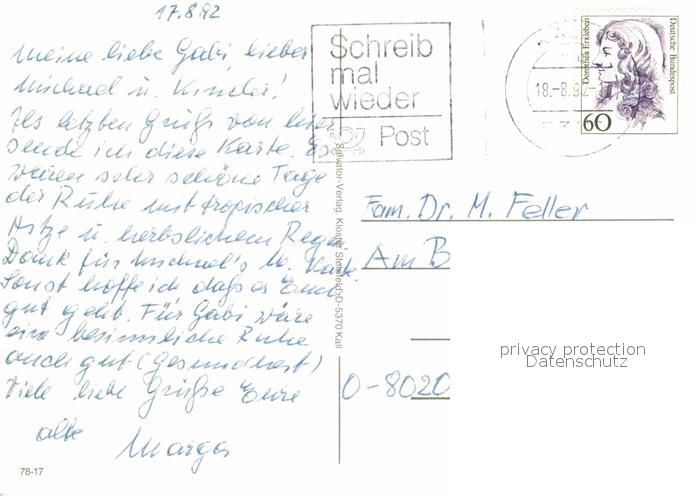 17.8.92
Meine liebe Gabi, lieber
Michael u. Kinder!
Als letzten Gruß von hier
sende ich diese Karte. Es
waren sehr schöne Tage
der Ruhe mit tropischer
Hitze u. herbstlichem Regen
Dank für Michael's Karte.
Sonst hoffe ich daß es Euch
gut geht. Für Gabi wäre
eine besinnliche Ruhe
auch gut (Gesundheit)
Viele liebe Grüße Eure
alte
Marga
78-17
Salvator-Verlag Kloster Steinfeld-D-5370 Kall
Schreib
mal
wieder
Post
18.-8.92
Dorothea Erxleben
Deutsche Bundespost
60
Fam. Dr. M. Feller
Am B
O-8020
privacy protection
Datenschutz